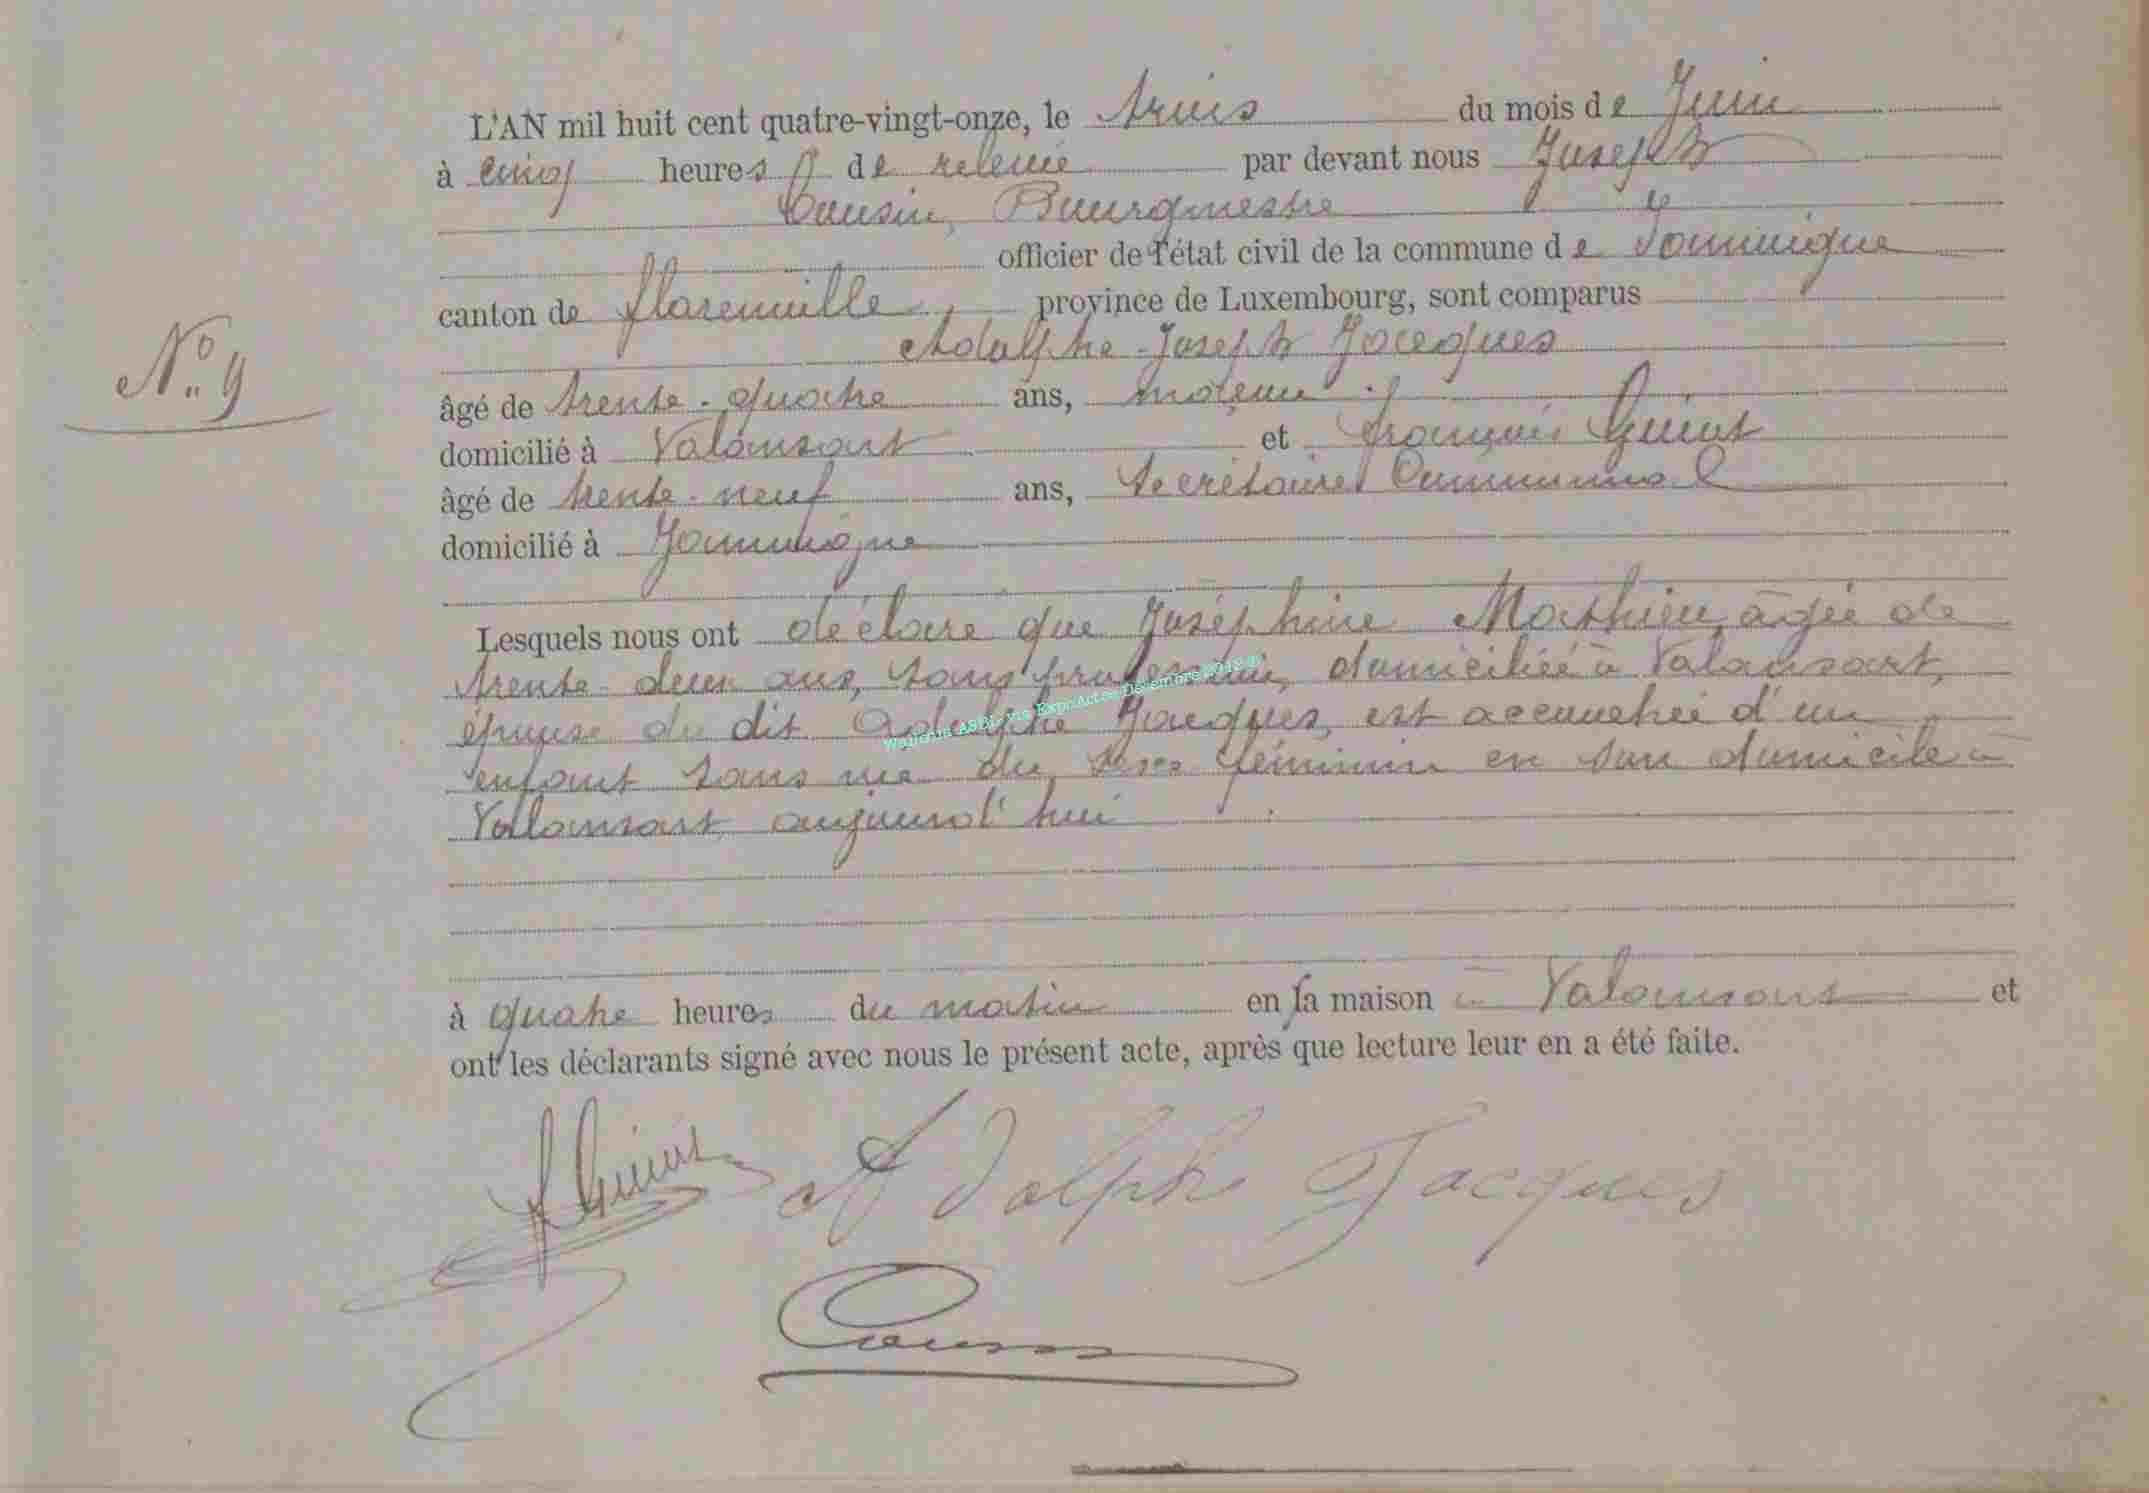 L'AN mil huit cent quatre-vingt-onze, le trois du mois de Juin
à cinq heures de relevée par devant nous Joseph
Cousin, Bourgmestre
officier de l'état civil de la commune de Jamoigne
N° 9
canton de Florenville, province de Luxembourg, sont comparus
Adolphe-Joseph Jacques
âgé de trente-quatre ans, maçon
domicilié à Valansart et François Guiot
âgé de trente-neuf ans, Secrétaire Communal
domicilié à Jamoigne
Lesquels nous ont déclaré que Joséphine Mathieu, âgée de
trente-deux ans, sans profession, domiciliée à Valansart,
épouse du dit Adolphe Jacques, est accouchée d'un
enfant sans vie du sexe féminin en son domicile à
Valansart aujourd'hui
à quatre heures du matin en sa maison à Valansart et
ont les déclarants signé avec nous le présent acte, après que lecture leur en a été faite.
F Guiot Adolphe Jacques
Cousin